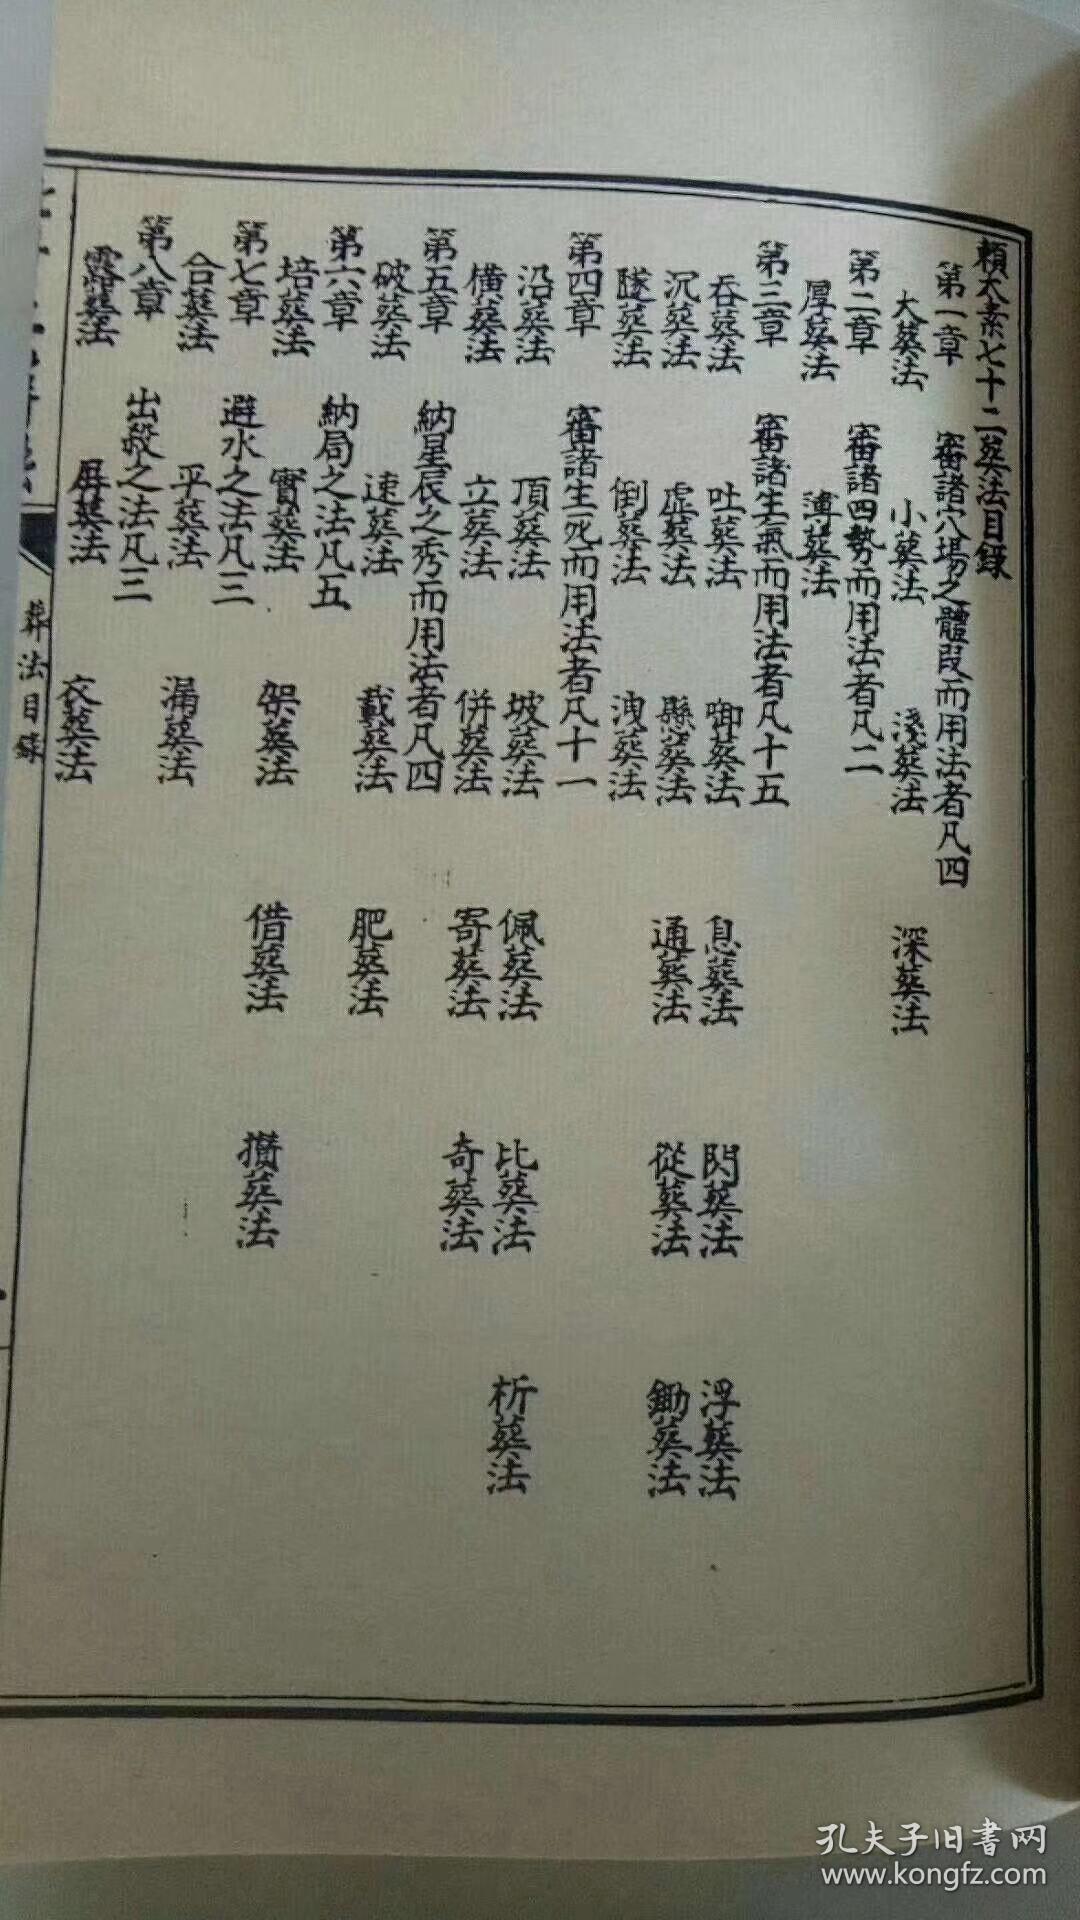 賴太素七十二葬法目錄
第一章 審諸穴場之體段而用法者凡四
大葬法 小葬法 淺葬法 深葬法
第二章 審諸四勢而用法者凡二
厚葬法 薄葬法
第三章 審諸生氣而用法者凡十五
吞葬法 吐葬法 啣葬法 息葬法 閃葬法 浮葬法
沉葬法 虛葬法 懸葬法 通葬法 從葬法 鋤葬法
隧葬法 倒葬法 洩葬法
第四章 審諸生死而用法者凡十一
沿葬法 頂葬法 坡葬法 佩葬法 比葬法 析葬法
橫葬法 立葬法 併葬法 寄葬法 奇葬法
第五章 納星辰之秀而用法者凡四
破葬法 速葬法 載葬法 肥葬法
第六章 納局之法凡五
培葬法 實葬法 架葬法 借葬法 攢葬法
第七章 避水之法凡三
合葬法 平葬法 漏葬法
第八章 出殺之法凡三
露葬法 屏葬法 衣葬法
葬法目錄
孔夫子旧書网
www.kongfz.com